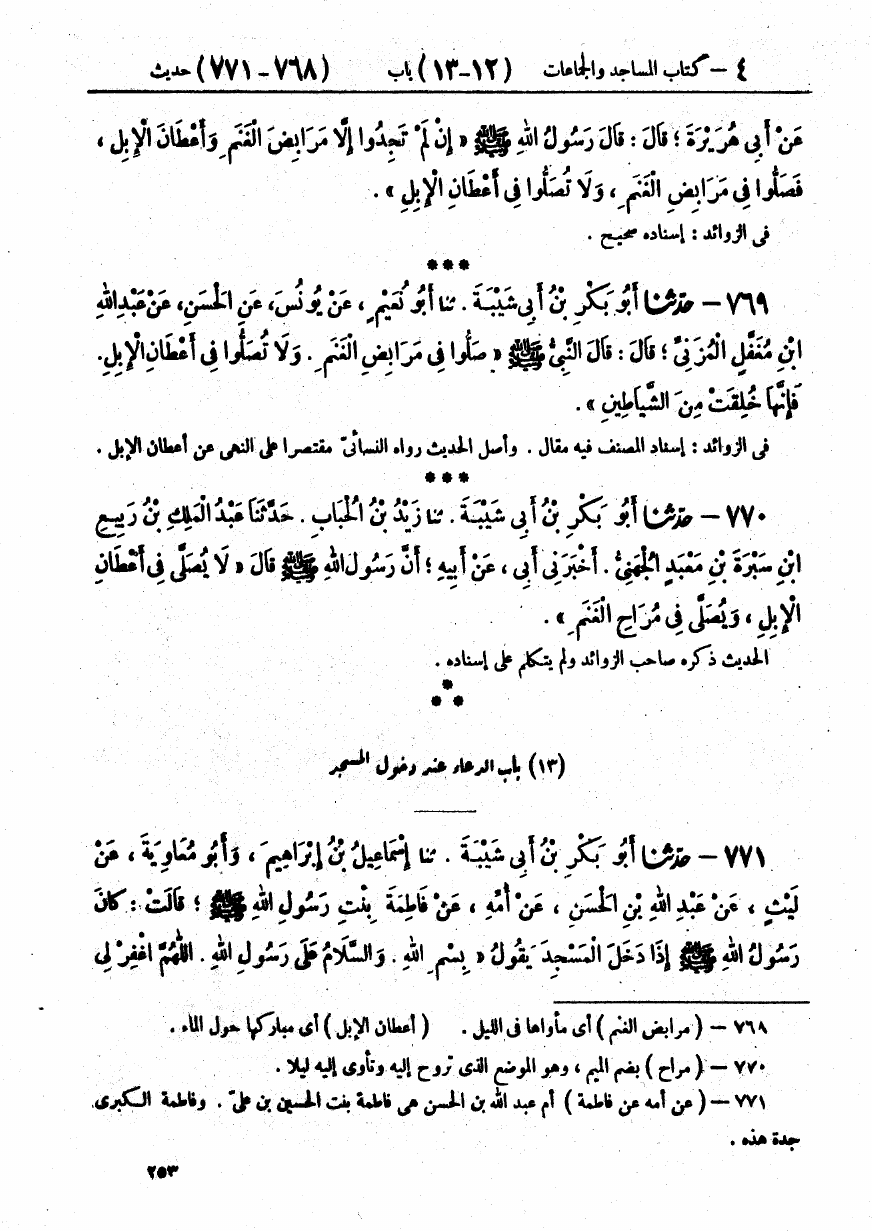 ٤ – كتاب المساجد والجماعات (١٢-١٣) باب (٧٦٨-٧٧١) حديث
عَنْ أَبِى هُرَيْرَةَ ؛ قَالَ : قَالَ رَسُولُ اللهِ ﷺ « إِنْ لَمْ تَجِدُوا إِلَّا مَرَابِضَ الْغَنَمِ وَأَعْطَانَ الْإِبِلِ ،
فَصَلُّوا فِى مَرَابِضِ الْغَنَمِ ، وَلَا تُصَلُّوا فِى أَعْطَانِ الْإِبِلِ » .
فى الزوائد : إسناده صحيح .
***
٧٦٩ – حدّثنا أَبُو بَكْرِ بْنُ أَبِى شَيْبَةَ . ثنا أَبُو نُعَيْمٍ ، عَنْ يُونُسَ، عَنِ الْحَسَنِ، عَنْ عَبْدِ اللهِ
ابْنِ مُغَفَّلٍ الْمُزَنِىِّ ؛ قَالَ : قَالَ النَّبِىُّ ﷺ « صَلُّوا فِى مَرَابِضِ الْغَنَمِ . وَلَا تُصَلُّوا فِى أَعْطَانِ الْإِبِلِ.
فَإِنَّهَا خُلِقَتْ مِنَ الشَّيَاطِينِ » .
فى الزوائد : إسناد المصنف فيه مقال . وأصل الحديث رواه النسائىّ مقتصرا على النهى عن أعطان الإبل .
***
٧٧٠ – حدّثنا أَبُو بَكْرِ بْنُ أَبِى شَيْبَةَ . ثنا زَيْدُ بْنُ الْحُبَابِ . حَدَّثَنَا عَبْدُ الْمَلِكِ بْنُ رَبِيعِ
ابْنِ سَبْرَةَ بْنِ مَعْبَدٍ الْجُهَنِىُّ . أَخْبَرَنِى أَبِى ، عَنْ أَبِيهِ ؛ أَنَّ رَسُولَ اللهِ ﷺ قَالَ « لَا يُصَلَّى فِى أَعْطَانِ
الْإِبِلِ ، وَيُصَلَّى فِى مُرَاحِ الْغَنَمِ » .
الحديث ذكره صاحب الزوائد ولم يتكلم على إسناده .
***
(١٣) باب الدعاء عند دخول المسجد
٧٧١ – حدّثنا أَبُو بَكْرِ بْنُ أَبِى شَيْبَةَ . ثنا إِسْمَاعِيلُ بْنُ إِبْرَاهِيمَ ، وَأَبُو مُعَاوِيَةَ ، عَنْ
لَيْثٍ ، عَنْ عَبْدِ اللهِ بْنِ الْحَسَنِ ، عَنْ أُمِّهِ ، عَنْ فَاطِمَةَ بِنْتِ رَسُولِ اللهِ ﷺ ؛ قَالَتْ : كَانَ
رَسُولُ اللهِ ﷺ إِذَا دَخَلَ الْمَسْجِدَ يَقُولُ « بِسْمِ اللهِ . وَالسَّلَامُ عَلَى رَسُولِ اللهِ . اللّٰهُمَّ اغْفِرْ لِى
٧٦٨ – ( مرابض الغنم ) أى مأواها فى الليل . ( أعطان الإبل ) أى مباركها حول الماء .
٧٧٠ – ( مراح ) بضم الميم ، وهو الموضع الذى تروح إليه وتأوى إليه ليلا .
٧٧١ – ( عن أمه عن فاطمة ) أم عبد الله بن الحسن هى فاطمة بنت الحسين بن علىّ . وفاطمة الكبرى
جدة هذه .
٢٥٣